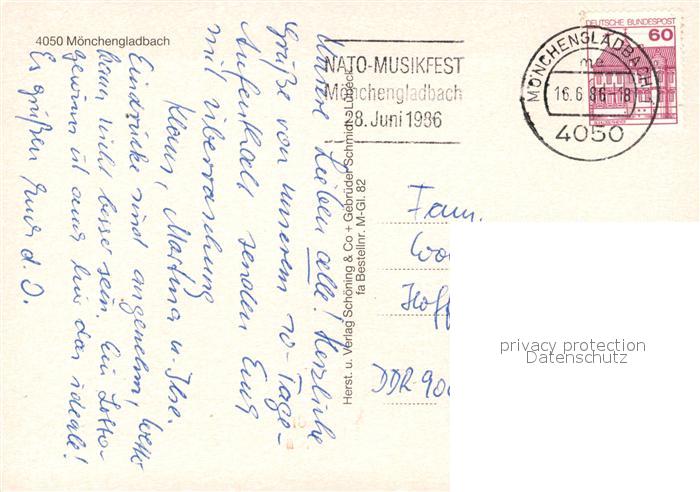 4050 Mönchengladbach
Unsere Lieben alle! Herzliche
Grüße von unserem 10-Tage-
Aufenthalt senden Euch
mit Überraschung
Klaus, Martina u. Ilse.
Eindrücke sind angenehm, Wetter
kann nicht besser sein. Ein Lotto-
gewinn ist auch hier das ideale!
Es grüßen Euch d. O.
Herst. u. Verlag Schöning & Co + Gebrüder Schmidt, Lübeck
fa Bestellnr. M-Gl. 82
NATO-MUSIKFEST
Mönchengladbach
28. Juni 1986
MÖNCHENGLADBACH
me
16.6.86-18
4050
DEUTSCHE BUNDESPOST
60
Fam.
Hoff
DDR-90
privacy protection
Datenschutz